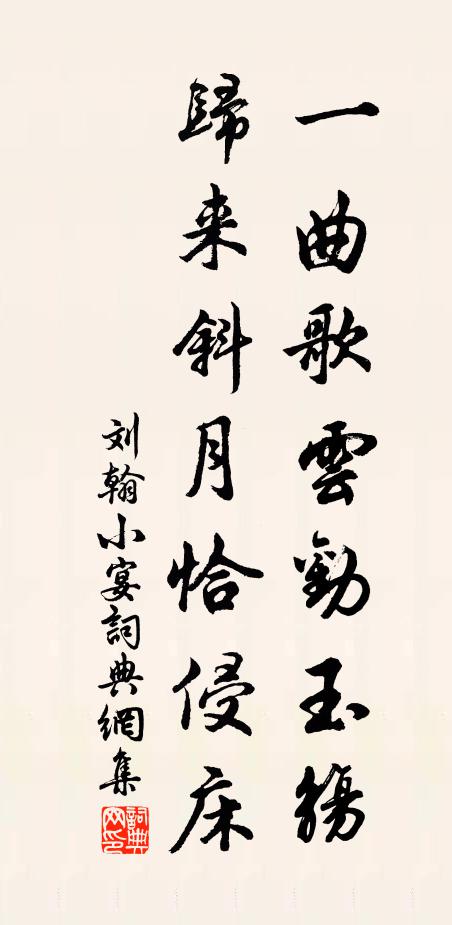 一曲歌雲勸玉觴
歸来斜月恰侵床
刘翰小宴詞典網集
詞典网印